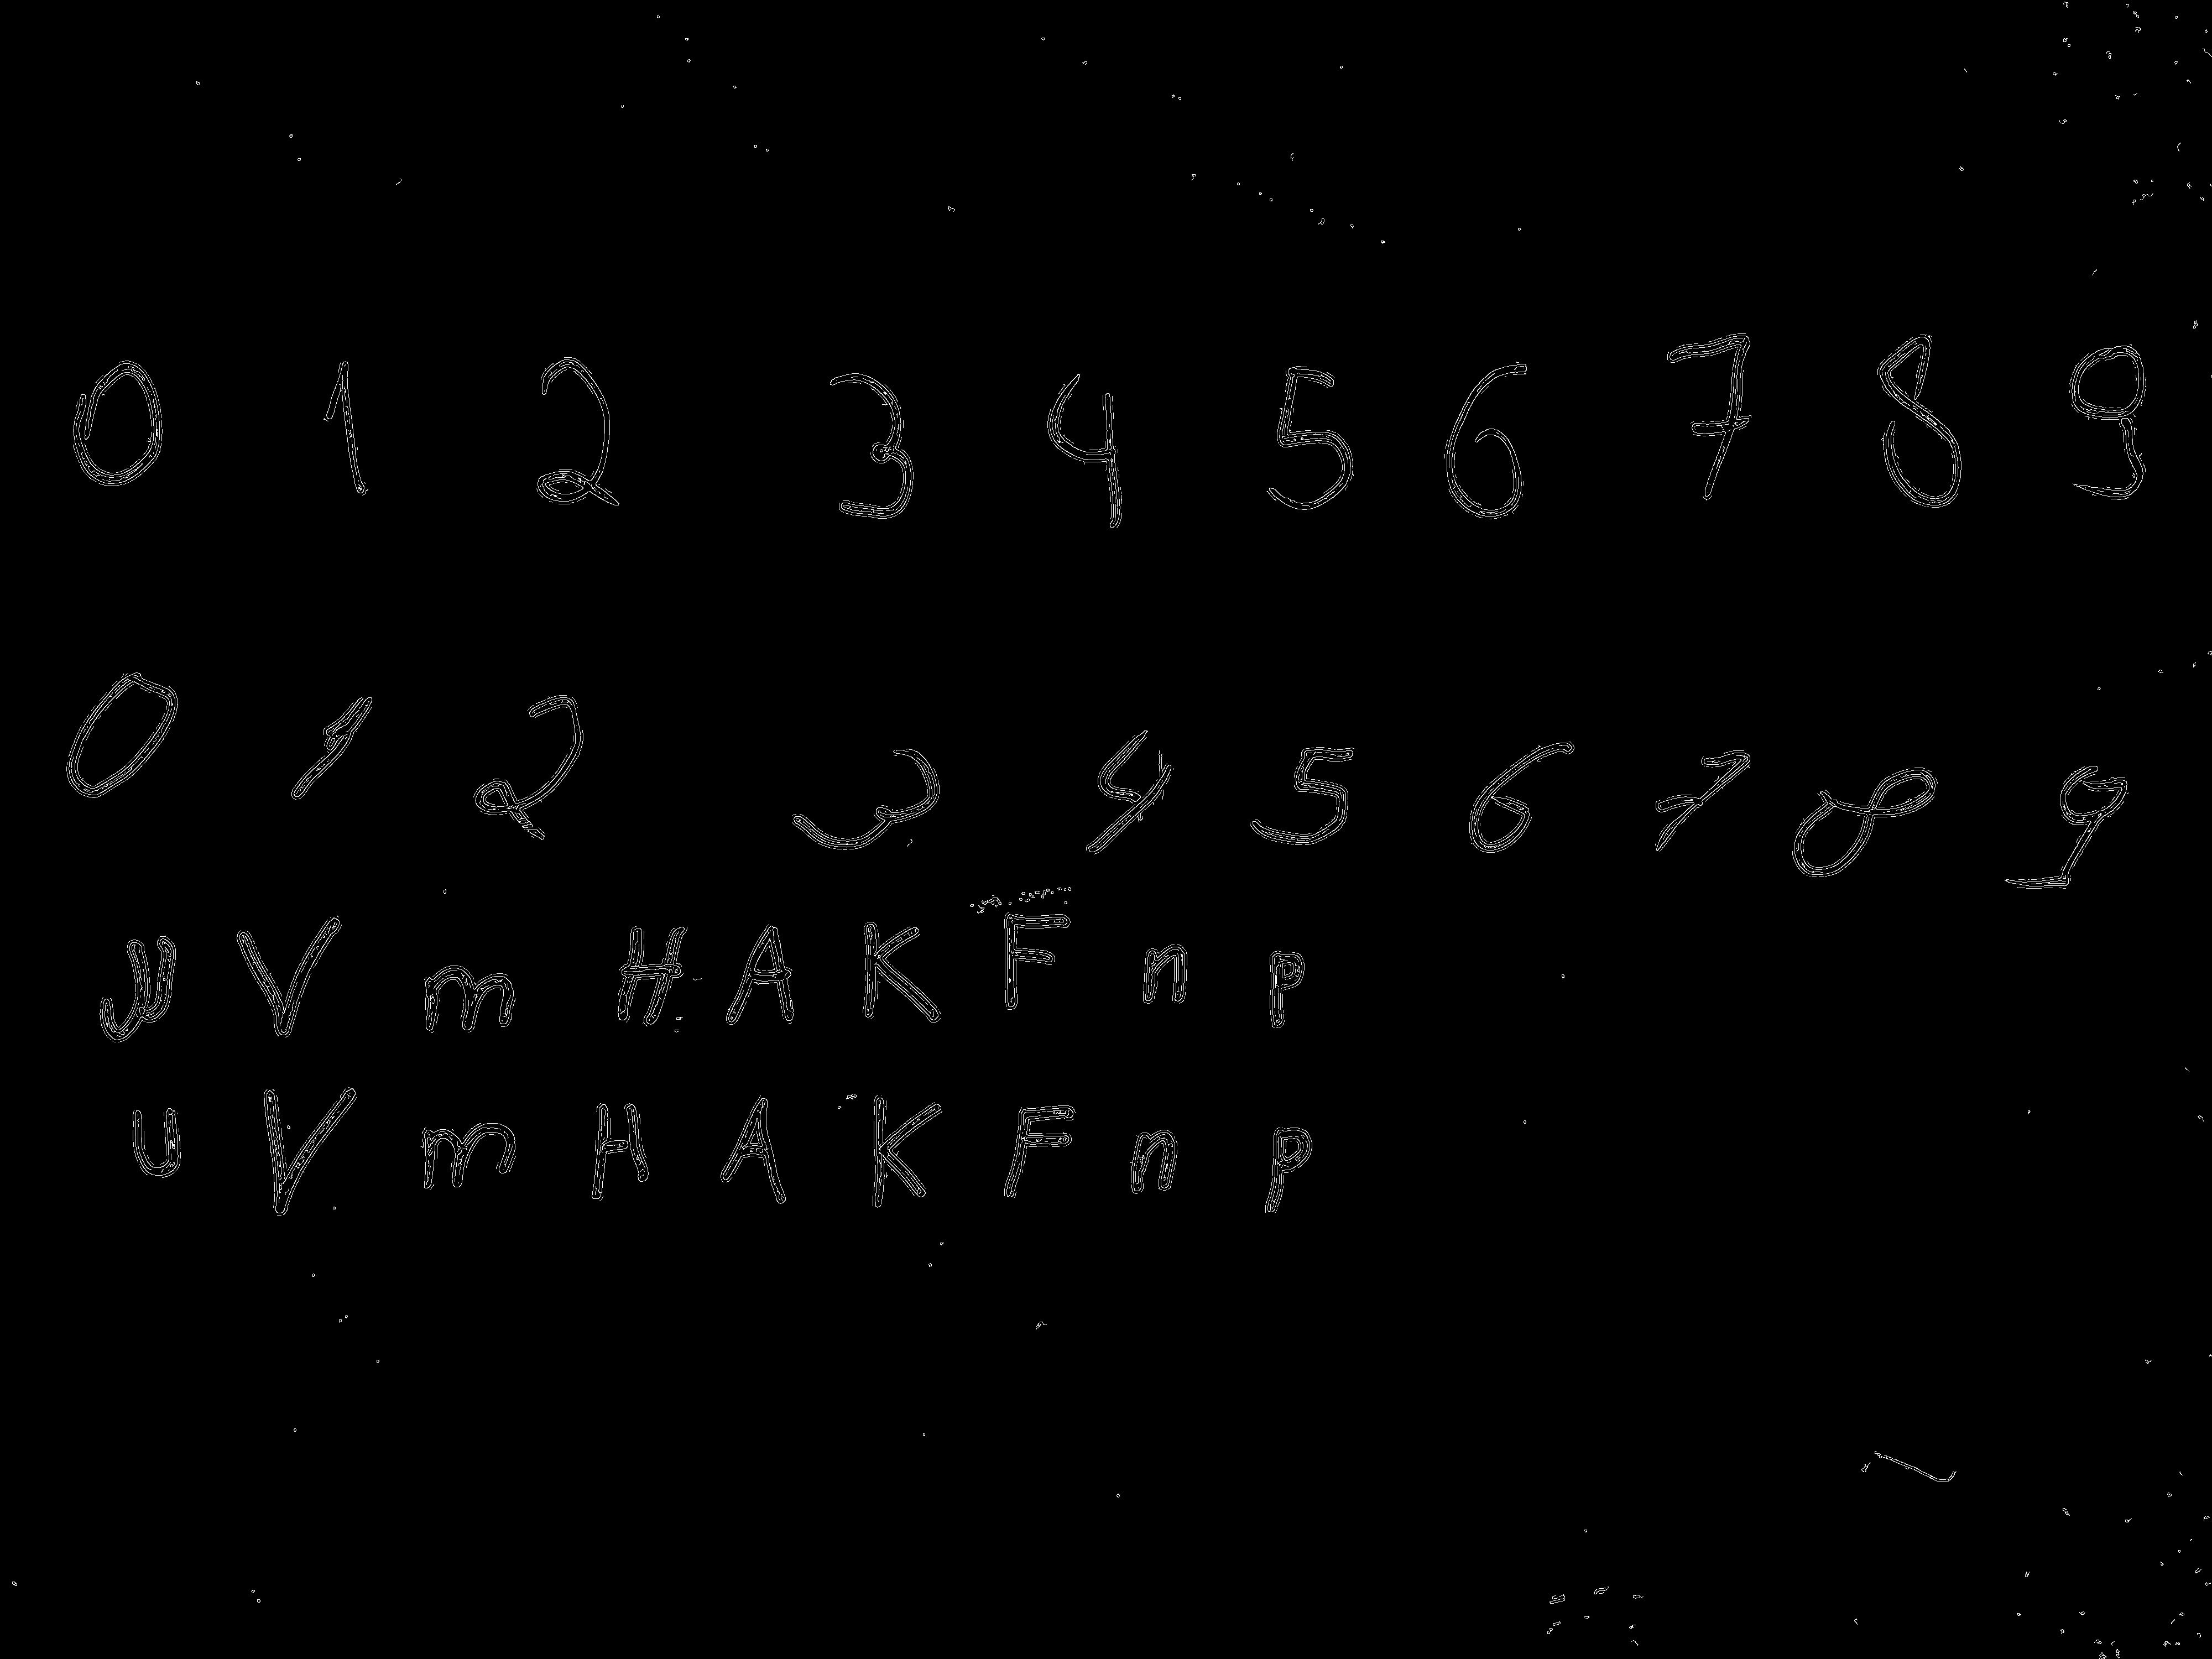 0 1 2 3 4 5 6 7 8 9
0 1 2 3 4 5 6 7 8 9
V m H A K F n p
U V m H A K F n p